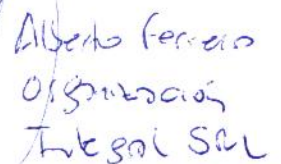 Alberto Ferrero
Organización
Integral SRL